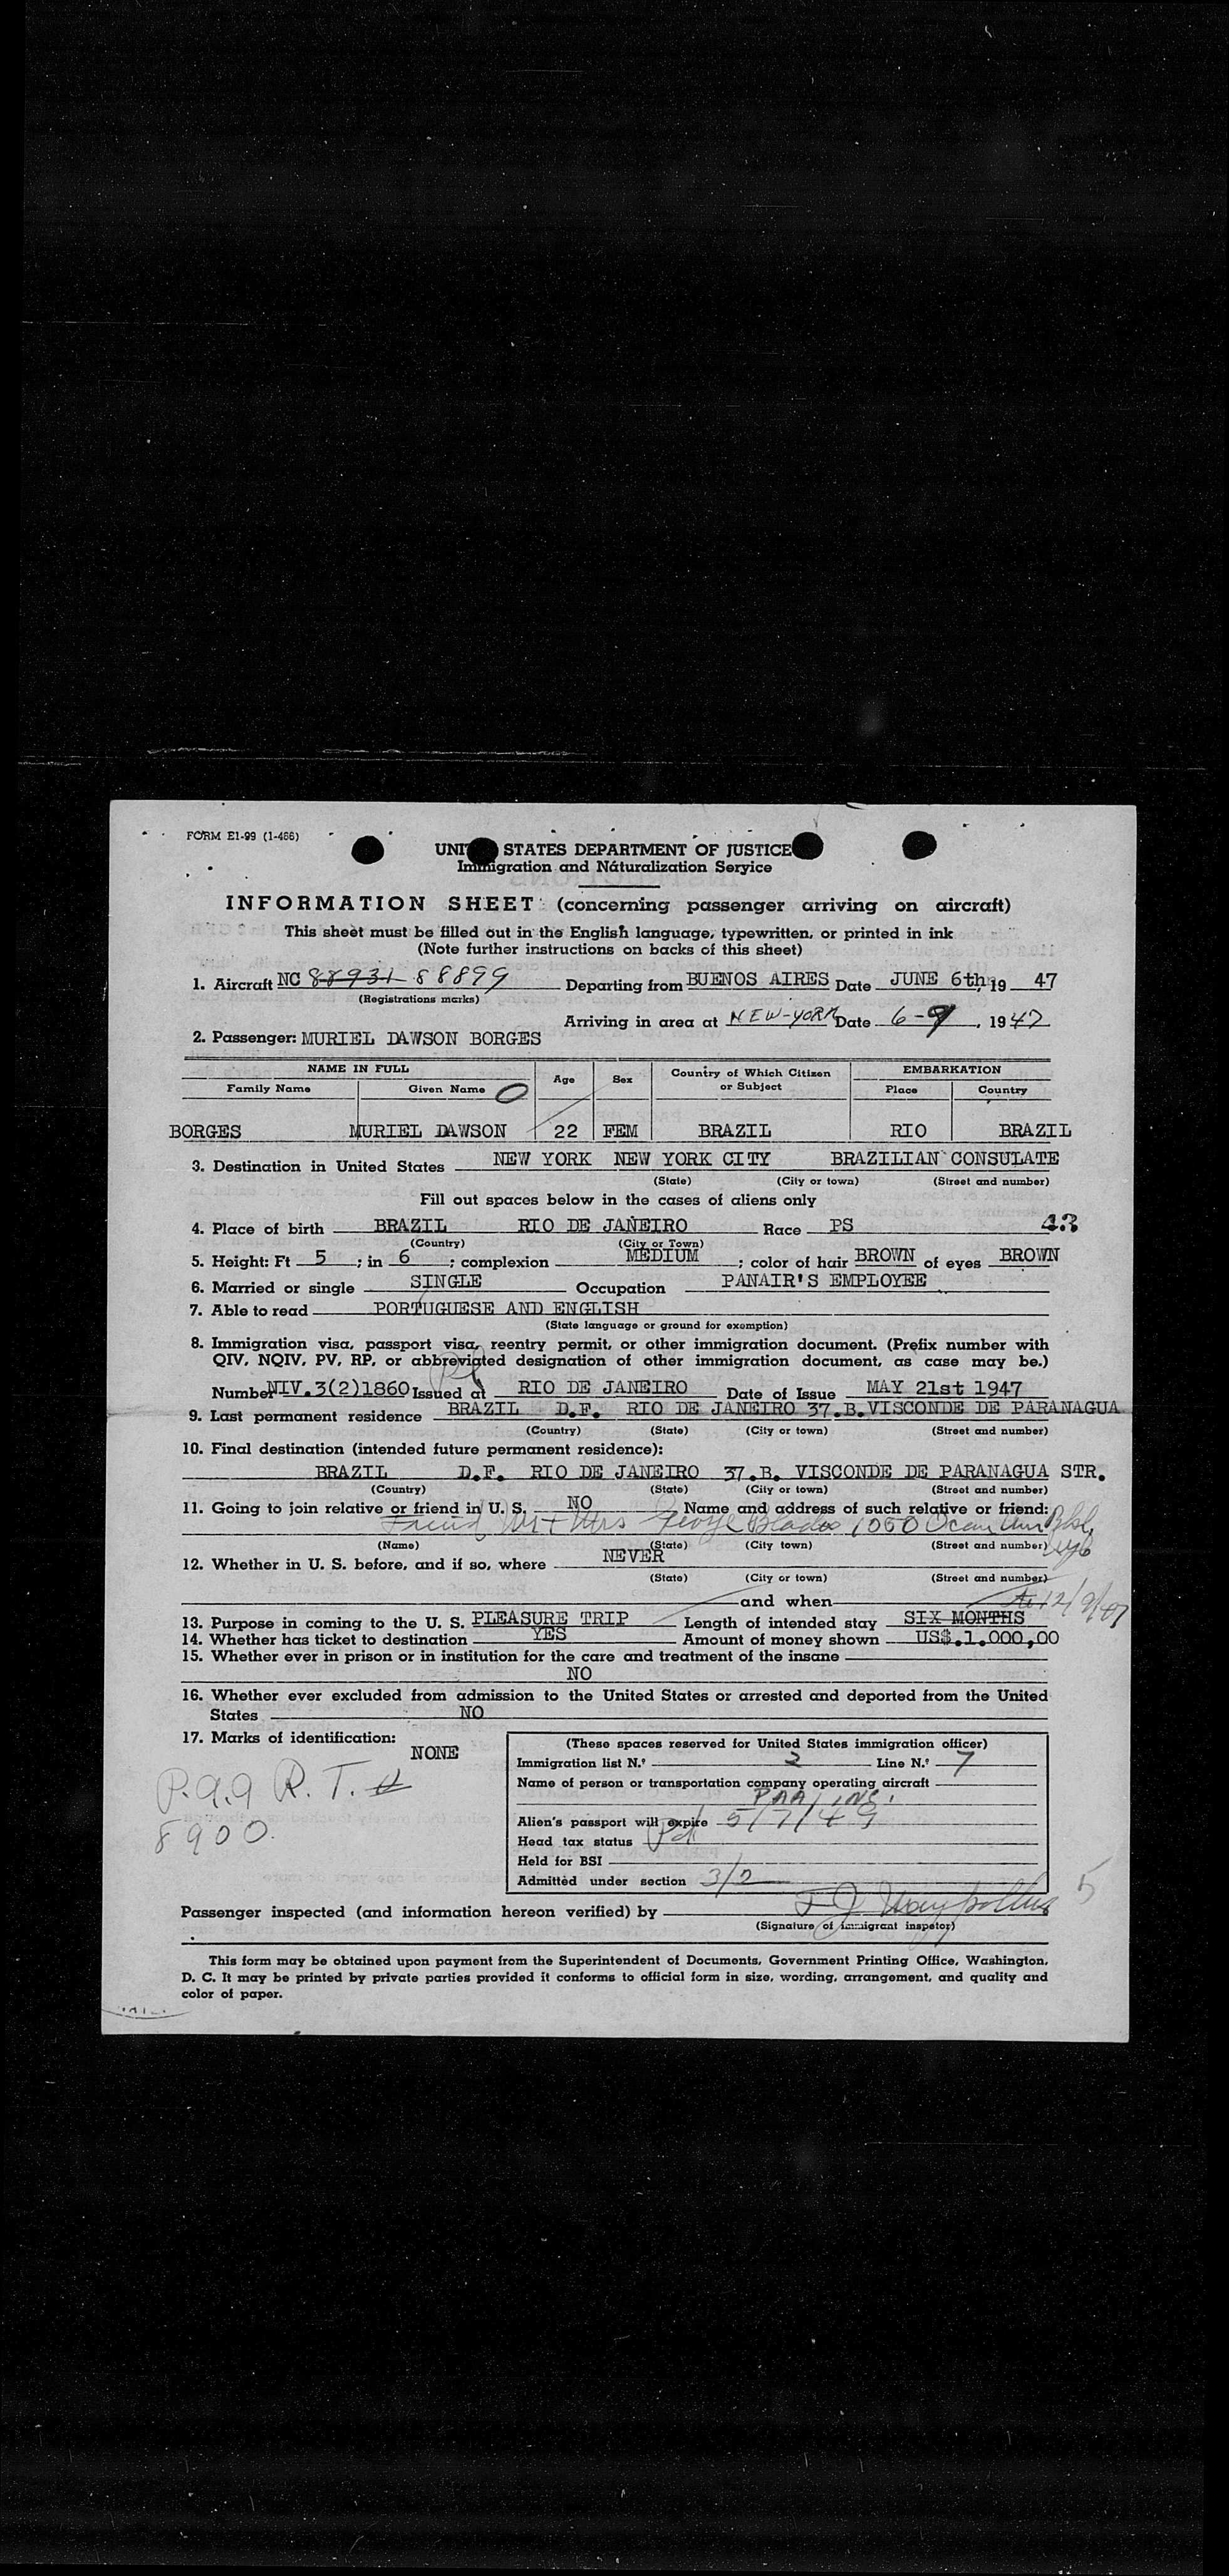 FORM E1-99 (1-466)
UNITED STATES DEPARTMENT OF JUSTICE
Immigration and Naturalization Service
INFORMATION SHEET (concerning passenger arriving on aircraft)
This sheet must be filled out in the English language, typewritten, or printed in ink
(Note further instructions on backs of this sheet)
1. Aircraft NC 88931 88899 Departing from BUENOS AIRES Date JUNE 6th, 19 47
(Registrations marks)
Arriving in area at NEW-YORK Date 6-9, 1947
2. Passenger: MURIEL DAWSON BORGES
NAME IN FULL Age Sex Country of Which Citizen or Subject EMBARKATION
Family Name Given Name Place Country
BORGES MURIEL DAWSON 22 FEM BRAZIL RIO BRAZIL
3. Destination in United States NEW YORK NEW YORK CITY BRAZILIAN CONSULATE
(State) (City or town) (Street and number)
Fill out spaces below in the cases of aliens only
4. Place of birth BRAZIL RIO DE JANEIRO Race PS 43
(Country) (City or Town)
5. Height: Ft 5 ; in 6 ; complexion MEDIUM ; color of hair BROWN of eyes BROWN
6. Married or single SINGLE Occupation PANAIR'S EMPLOYEE
7. Able to read PORTUGUESE AND ENGLISH
(State language or ground for exemption)
8. Immigration visa, passport visa, reentry permit, or other immigration document. (Prefix number with
QIV, NQIV, PV, RP, or abbreviated designation of other immigration document, as case may be.)
Number NIV.3(2)1860 Issued at RIO DE JANEIRO Date of Issue MAY 21st 1947
9. Last permanent residence BRAZIL D.F. RIO DE JANEIRO 37.B.VISCONDE DE PARANAGUA
(Country) (State) (City or town) (Street and number)
10. Final destination (intended future permanent residence):
BRAZIL D.F. RIO DE JANEIRO 37.B. VISCONDE DE PARANAGUA STR.
(Country) (State) (City or town) (Street and number)
11. Going to join relative or friend in U. S. NO Name and address of such relative or friend:
Friend Mr + Mrs George Blados 1050 Ocean
(Name) (State) (City town) (Street and number)
12. Whether in U. S. before, and if so, where NEVER
(State) (City or town) (Street and number)
and when
to 12/9/47
13. Purpose in coming to the U. S. PLEASURE TRIP Length of intended stay SIX MONTHS
14. Whether has ticket to destination YES Amount of money shown US$.1.000,00
15. Whether ever in prison or in institution for the care and treatment of the insane
NO
16. Whether ever excluded from admission to the United States or arrested and deported from the United
States NO
17. Marks of identification:
NONE
P.a.a R. T. #
8900
(These spaces reserved for United States immigration officer)
Immigration list N.º 2 Line N.º 7
Name of person or transportation company operating aircraft
PAA, INC.
Alien's passport will expire 5/7/49
Head tax status Pd
Held for BSI
Admitted under section 3/2
5
Passenger inspected (and information hereon verified) by
(Signature of immigrant inspetor)
This form may be obtained upon payment from the Superintendent of Documents, Government Printing Office, Washington,
D. C. It may be printed by private parties provided it conforms to official form in size, wording, arrangement, and quality and
color of paper.